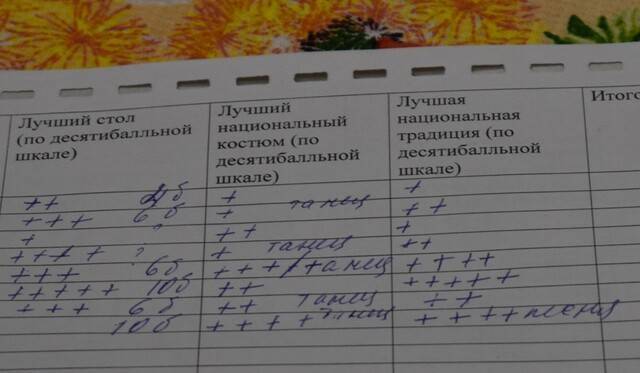 Лучший стол (по десятибалльной шкале)
Лучший национальный костюм (по десятибалльной шкале)
Лучшая национальная традиция (по десятибалльной шкале)
Итого
++ 4б + +
+++ 6б + танец ++
+ ? ++ +
++++ ? + танец ++
+++ 6б ++++ танец ++++
+++++ 10б ++ +++++
+++ 6б ++ танец ++
10б ++++ танец ++++ песня